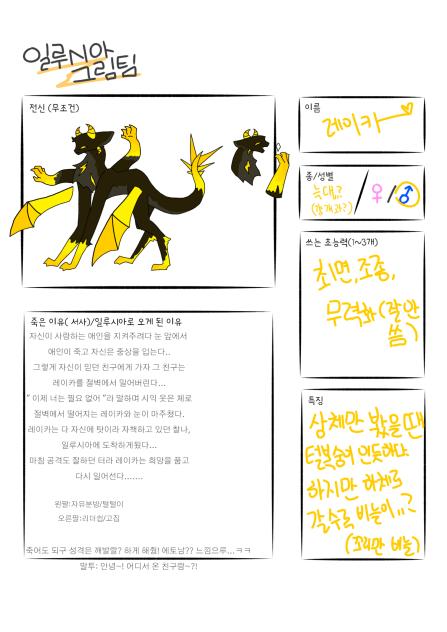 일루시아
그림팀
전신 (무조건)
이름
레이카
종/성별
늑대..?
(갯과?)
/♀/♂
쓰는 초능력(1~3개)
최면,조종,
무력화(잘안
씀)
죽은 이유( 서사)/일루시아로 오게 된 이유
자신이 사랑하는 애인을 지켜주려다 눈 앞에서
애인이 죽고 자신은 중상을 입는다..
그렇게 자신이 믿던 친구에게 가자 그 친구는
레이카를 절벽에서 밀어버린다...
" 이제 너는 필요 없어 "라 말하며 사악 웃은 체로
절벽에서 떨어지는 레이카와 눈이 마주쳤다.
레이카는 다 자신에 탓이라 자책하고 있던 찰나,
일루시아에 도착하게됬다...
마침 공격도 잘하던 터라 레이카는 희망을 품고
다시 일어선다.......
왼팔:자유분방/털털이
오른팔:리더쉽/고집
죽어도 되구 성격은 깨발랄? 하게 해줭! 에토남?? 느낌으루...ㅋㅋ
말투: 안녕~! 어디서 온 친구람~?!
특징
삼체만 봤을때
털복숭이 인듯하다
하지만 하체로
갈수록 비늘이,,?
(꼬리만 비늘)